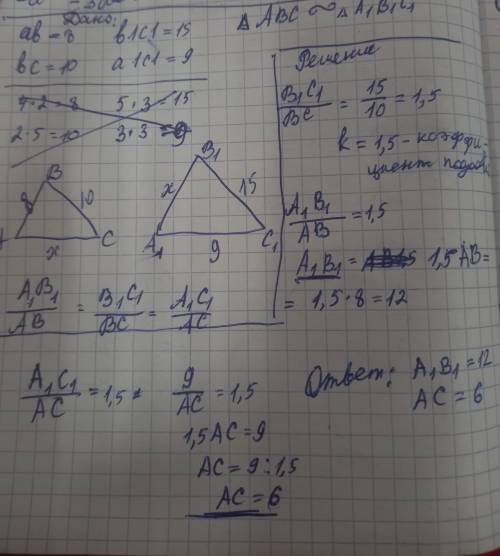 Дано:
ab = 8 b1c1 = 15
bc = 10 a1c1 = 9
△ABC ~ △A₁B₁C₁
4·2=8 5·3=15
2·5=10 3·3=9
B
8 10
x C
B₁
x 15
A₁ 9 C₁
A₁B₁/AB = B₁C₁/BC = A₁C₁/AC
Решение
B₁C₁/BC = 15/10 = 1,5
k = 1,5 - коэффи-
циент подоби
A₁B₁/AB = 1,5
A₁B₁ = 1,5 AB =
= 1,5·8 = 12
A₁C₁/AC = 1,5 9/AC = 1,5
1,5AC = 9
AC = 9:1,5
AC = 6
Ответ: A₁B₁ = 12
AC = 6